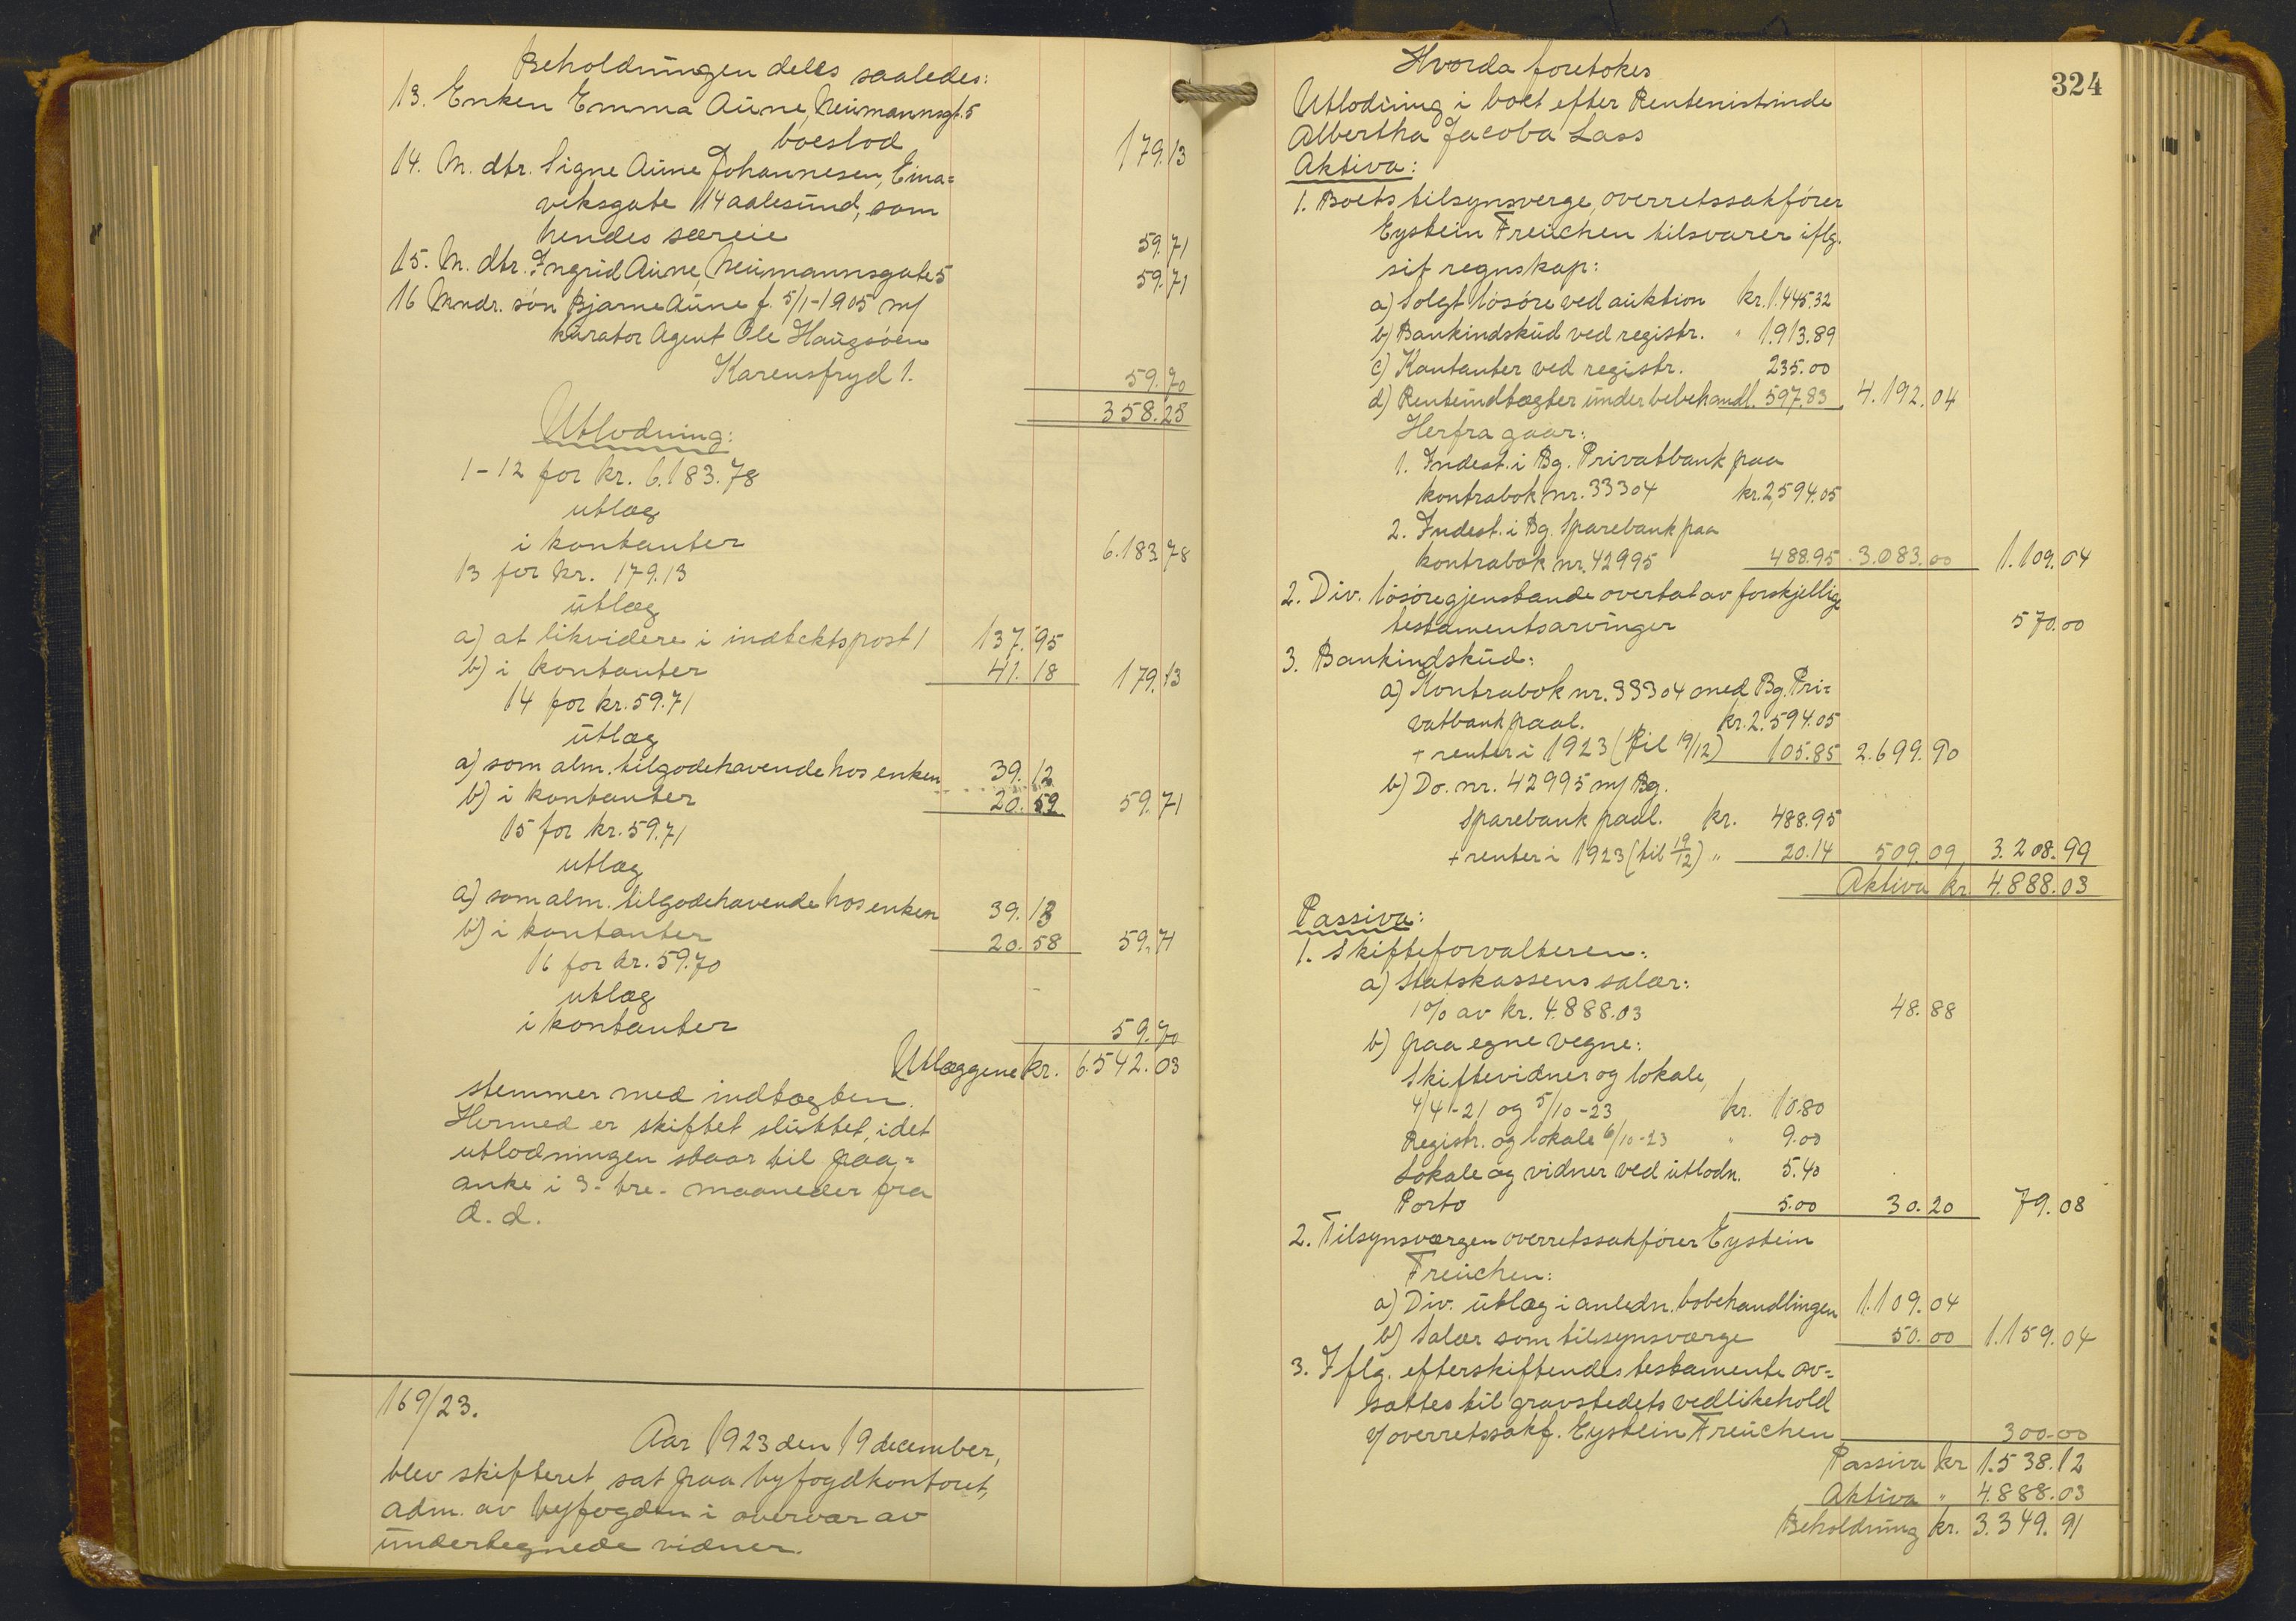 Beholdningen deles saaledes:
13. Enken Emma Aune, Neumannsgt. 5
boeslod 179.13
14. M. dtr. Signe Aune Johannesen, Eina=
viksgate 14 Aalesund, som
hendes særeie 59.71
15. M. dtr. Ingrid Aune, Neumannsgate 5 59.71
16 Mndr. søn Bjarne Aune f. 5/1-1905 m/
kurator Agent Ole Haugsøen
Karensfryd 1. 59.70
358.25
Utlodning:
1-12 for kr. 6.183.78
utlæg
i kontanter 6.183.78
13 for kr. 179.13
utlæg
a) at likvidere i indtektspost 1 137.95
b) i kontanter 41.18 179.13
14 for kr. 59.71
utlæg
a) som alm. tilgodehavende hos enken 39.12
b) i kontanter 20.59 59.71
15 for kr. 59.71
utlæg
a) som alm. tilgodehavende hos enken 39.13
b) i kontanter 20.58 59.71
16 for kr. 59.70
utlæg
i kontanter 59.70
Utlæggene kr. 6.542.03
stemmer med indtægten.
Hermed er skiftet sluttet, idet
utlodningen staar til paa=
anke i 3- tre- maaneder fra
d.d.
169/23.
Aar 1923 den 19 december,
blev skifteret sat paa byfogdkontoret,
adm. av byfogden i overvær av
undertegnede vidner.
324
Hvorda foretokes
Utlodning i boet efter Rentenistinde
Albertha Jacoba Lass
Aktiva:
1. Boets tilsynsverge, overretssakfører
Eystein Freuchen tilsvarer iflg.
sit regnskap:
a) Solgt løsøre ved auktion kr. 1.445.32
b) Bankindskud ved registr. " 1.913.89
c) Kontanter ved registr. 235.00
d) Renteindtægter under bobehandl. 597.83 4.192.04
Herfra gaar:
1. Indest. i Bg. Privatbank paa
kontrabok nr. 33304 kr. 2,594.05
2. Indest. i Bg. Sparebank paa
kontrabok nr. 42995 488.95 3.083.00 1.109.04
2. Div. løsøregjenstande overtat av forskjellige
testamentsarvinger 570.00
3. Bankindskud:
a) Kontrabok nr. 33304 med Bg. Pri=
vatbank paal. kr. 2.594.05
+ renter i 1923 (til 19/12) 105.85 2.699.90
b) Do. nr. 42995 m/ Bg.
Sparebank paal. kr. 488.95
+ renter i 1923 (til 19/12) " 20.14 509.09 3.208.99
Aktiva kr. 4.888.03
Passiva:
1. Skifteforvalteren:
a) Statskassens salær:
1% av kr. 4.888.03 48.88
b) paa egne vegne:
Skiftevidner og lokale,
4/4-21 og 5/10-23 kr. 10.80
Registr. og lokale 6/10-23 " 9.00
Lokale og vidner ved utlodn. 5.40
Porto 5.00 30.20 79.08
2. Tilsynsværgen overretssakfører Eystein
Freuchen:
a) Div. utlæg i anledn. bobehandlingen 1.109.04
b) Salær som tilsynsværge 50.00 1.159.04
3. Iflg. efterskiftendes testamente av=
sattes til gravstedets vedlikehold
v/ overretssakf. Eystein Freuchen 300.00
Passiva kr 1.538.12
Aktiva " 4.888.03
Beholdning kr. 3.349.91